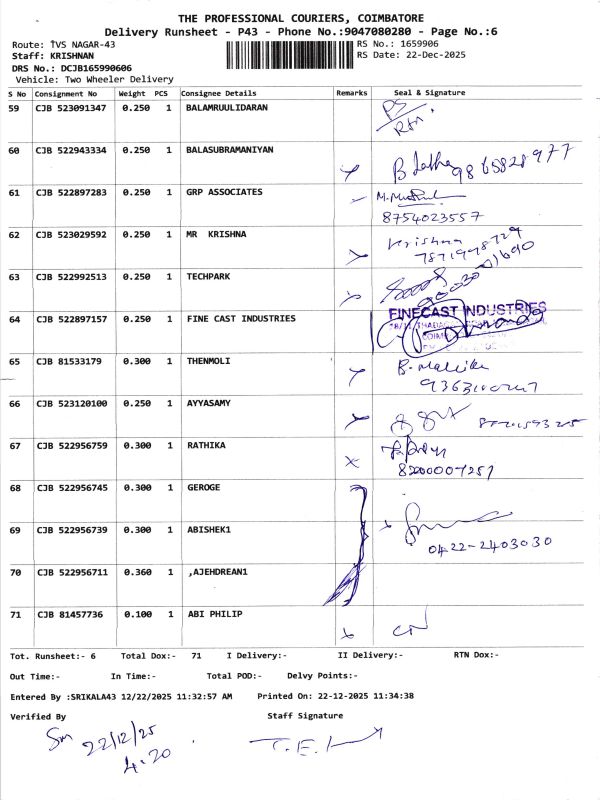 THE PROFESSIONAL COURIERS, COIMBATORE
Delivery Runsheet - P43 - Phone No.:9047080280 - Page No.:6
Route: TVS NAGAR-43
RS No.: 1659906
Staff: KRISHNAN
RS Date: 22-Dec-2025
DRS No.: DCJB165990606
Vehicle: Two Wheeler Delivery
S No Consignment No Weight PCS Consignee Details Remarks Seal & Signature
59 CJB 523091347 0.250 1 BALAMRUULIDARAN
60 CJB 522943334 0.250 1 BALASUBRAMANIYAN
61 CJB 522897283 0.250 1 GRP ASSOCIATES
8754023557
62 CJB 523029592 0.250 1 MR KRISHNA Krishna
63 CJB 522992513 0.250 1 TECHPARK
64 CJB 522897157 0.250 1 FINE CAST INDUSTRIES FINECAST INDUSTRIES
65 CJB 81533179 0.300 1 THENMOLI
66 CJB 523120100 0.250 1 AYYASAMY
67 CJB 522956759 0.300 1 RATHIKA
68 CJB 522956745 0.300 1 GEROGE
69 CJB 522956739 0.300 1 ABISHEK1
0422-2403030
70 CJB 522956711 0.360 1 ,AJEHDREAN1
71 CJB 81457736 0.100 1 ABI PHILIP
Tot. Runsheet:- 6 Total Dox:- 71 I Delivery:- II Delivery:- RTN Dox:-
Out Time:- In Time:- Total POD:- Delvy Points:-
Entered By :SRIKALA43 12/22/2025 11:32:57 AM Printed On: 22-12-2025 11:34:38
Verified By Staff Signature
22/12/25
4.20